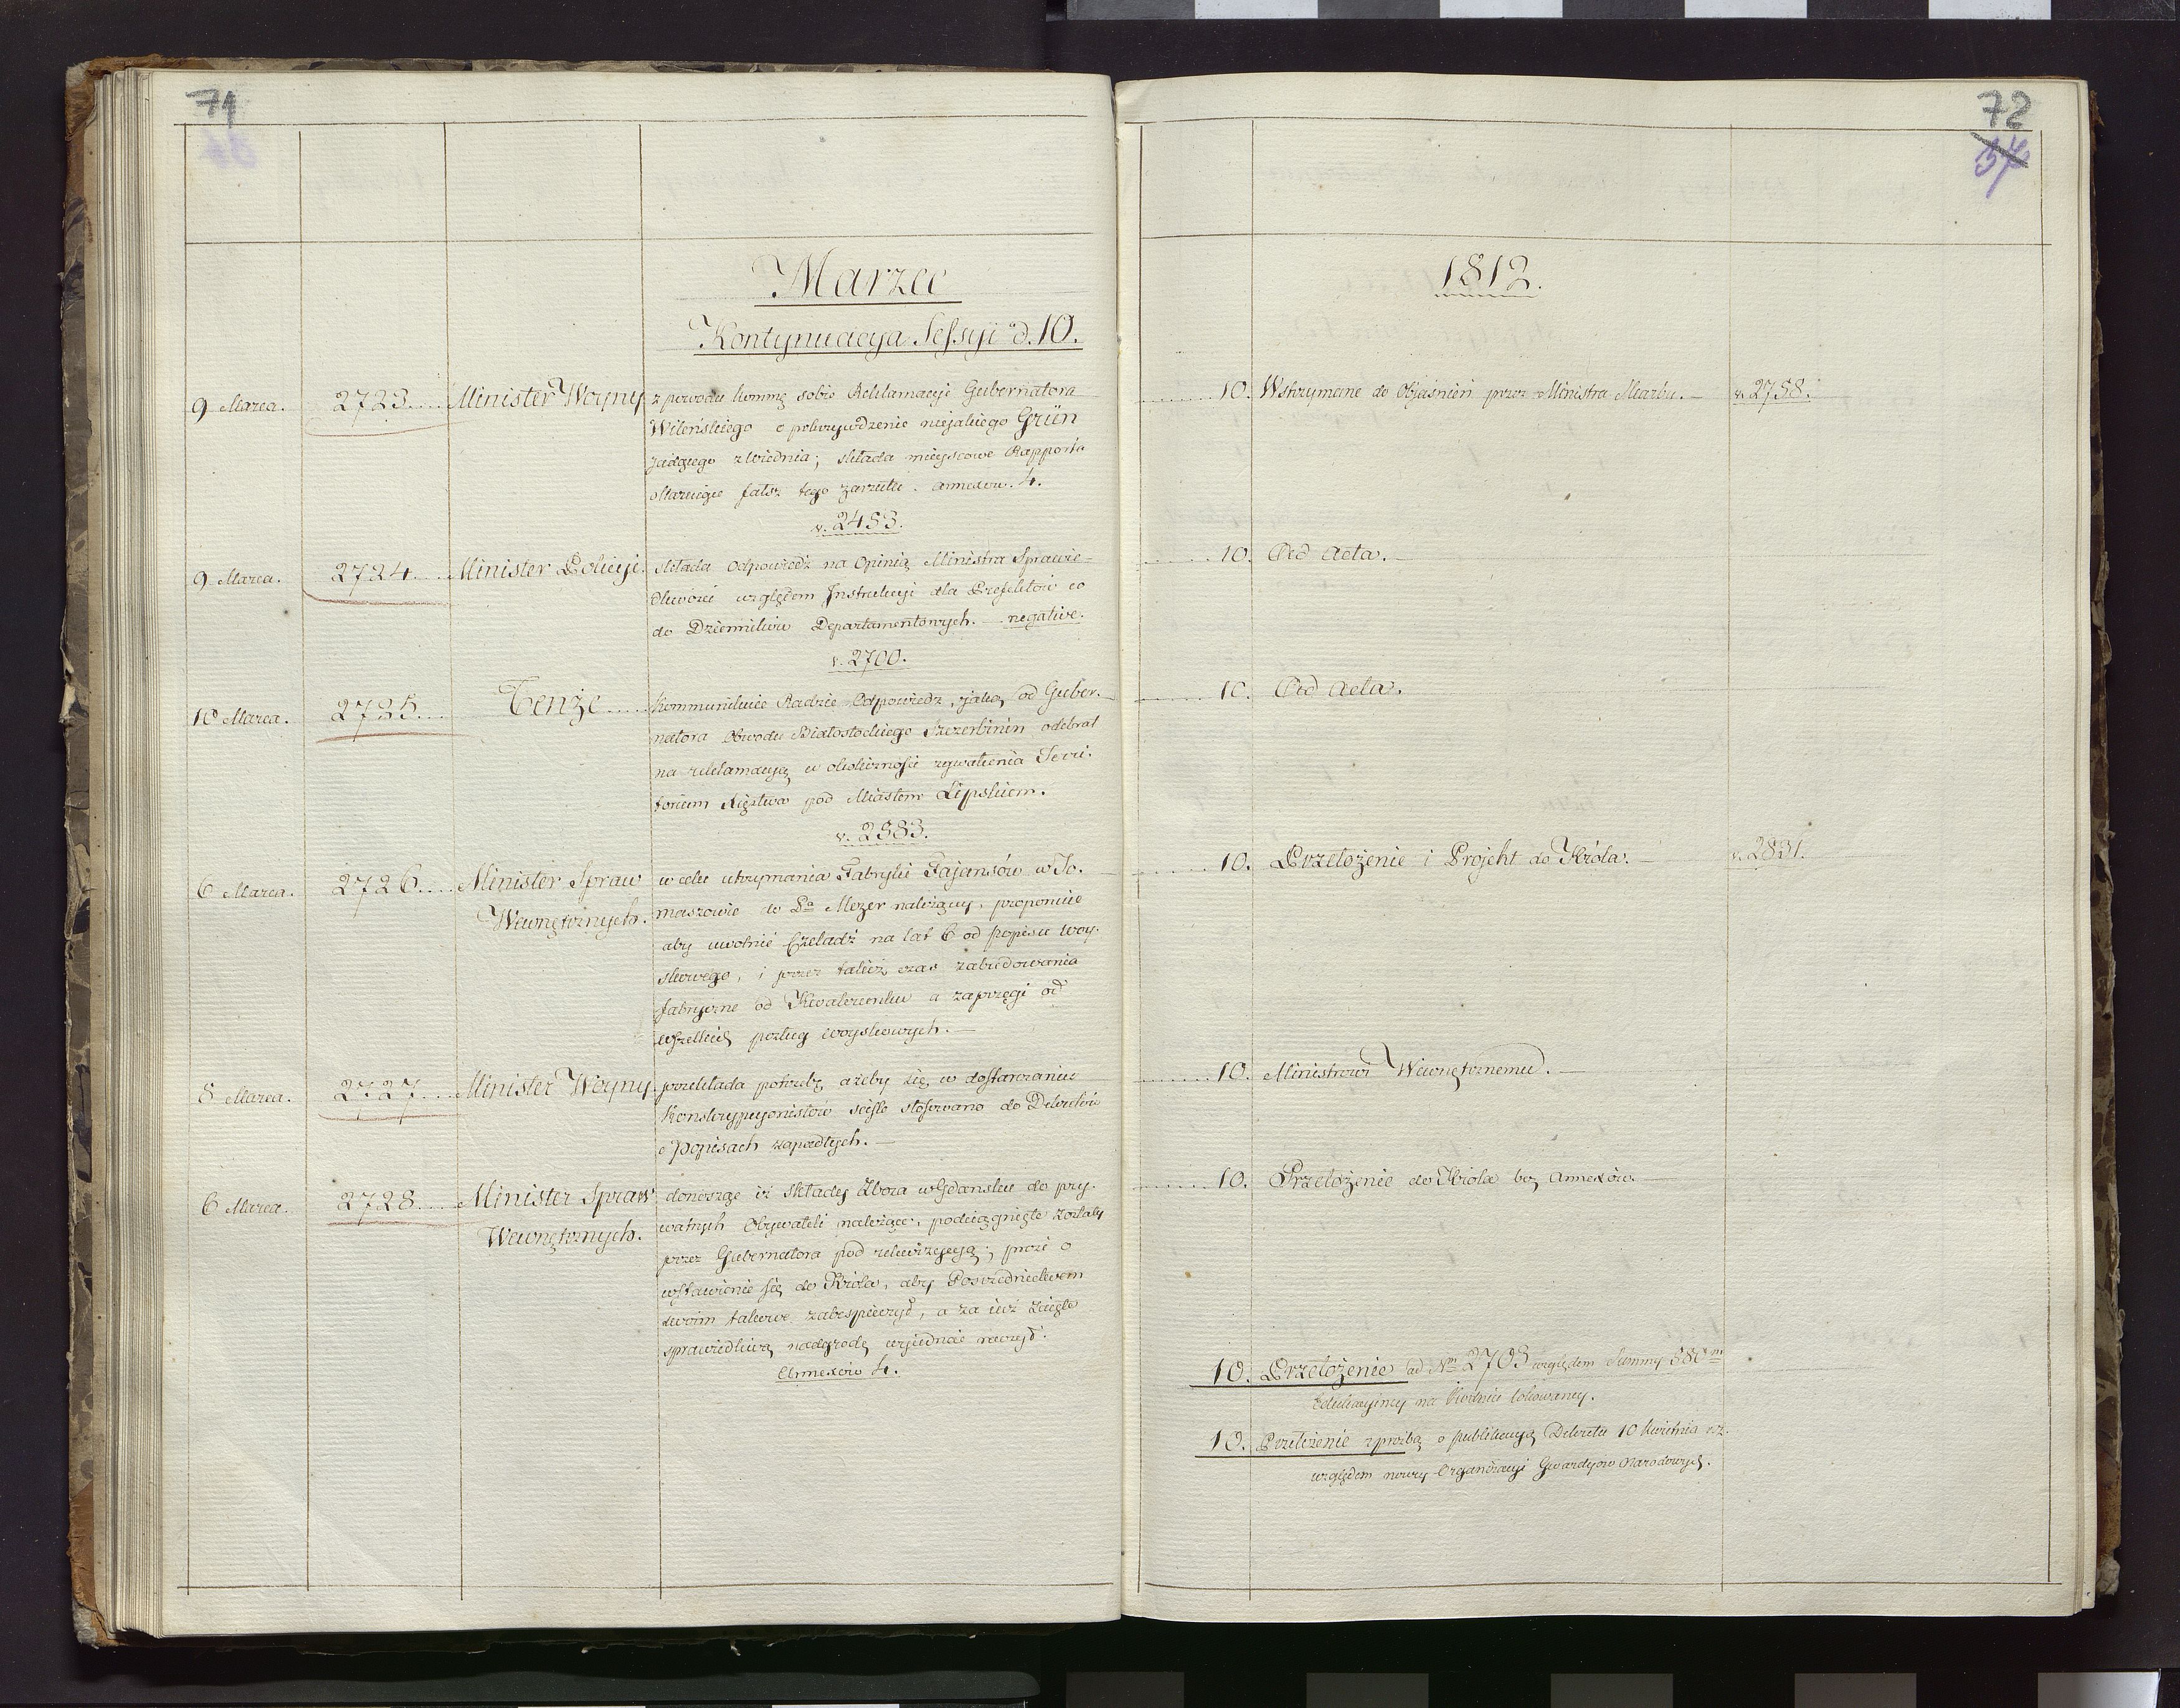 71
Marzec
Kontynuacya Sessyi d. 10.
9 Marca. 2723 .... Minister Woyny
z powodu kommę sobie Reklamacyi Gubernatora
Wileńskiego o pokrzywdzenie niejakiego Grün
jadącego z Wiednia; składa miejscowe Rapporta
okazuiące fałsz tego zarzutu. annexów. 4.
v. 2453.
9 Marca. 2724 .... Minister Policyi.
składa odpowiedź na Opinią Ministra Sprawie-
dliwości względem Instrukcyi dla Prefektów co
do Dzienników Departamentowych. — negative.
v. 2700.
10 Marca. 2725 .... Tenże ....
kommunikuie Radzie Odpowiedź, jaką od Guber-
natora Obwodu Białostockiego Szczerbinin odebrał
na reklamacyą w okoliczności zgwałcenia Terri-
torium Xięstwa pod Miastem Lipskiem.
v. 2583.
6 Marca. 2726 .... Minister Spraw
Wewnętrznych.
w celu utrzymania Fabryki Fajansów w To-
maszowie do Pa Mezer należący, proponuie
aby uwolnić Czeladź na lat 6 od popisu woy-
skowego, i przez takiż czas zabudowania
fabryczne od Kwaterunku a zaprzęgi od
wszelkich posług woyskowych. —
8 Marca. 2727 .... Minister Woyny
przekłada potrzebę ażeby się w dostarczaniu
Konskrypcyonistów ściśle stosowano do Dekretów
o Popisach zapadłych. —
6 Marca. 2728 .... Minister Spraw
Wewnętrznych.
donosząc iż składy Zboża w Gdańsku do pry-
watnych Obywateli należące, podciągnięte zostały
przez Gubernatora pod rekwizycyą; prosi o
wstawienie się do Króla, aby Pośrednictwem
swoim takowe zabespieczył, a za iuż zaięte
sprawiedliwą nadgrodę wyiednać raczył.
Annexów 4.
72
37
1812.
10. Wstrzymane do Objaśnień przez Ministra Skarbu. — v. 2758.
10. Ad Acta. —
10. Ad Acta.
10. Przełożenie i Projekt do Króla. — v. 2831.
10. Ministrowi Wewnętrznemu. —
10. Przełożenie do Króla bez Annexów. —
10. Przełożenie ad Nm 2703 względem Summy 380m
Edukacyiney na lokowaney.
10. Przełożenie z prozbą o publikacyą Dekretu 10 Kwietnia r. z.
względem nowey Organizacyi Gwardyów Narodowych.